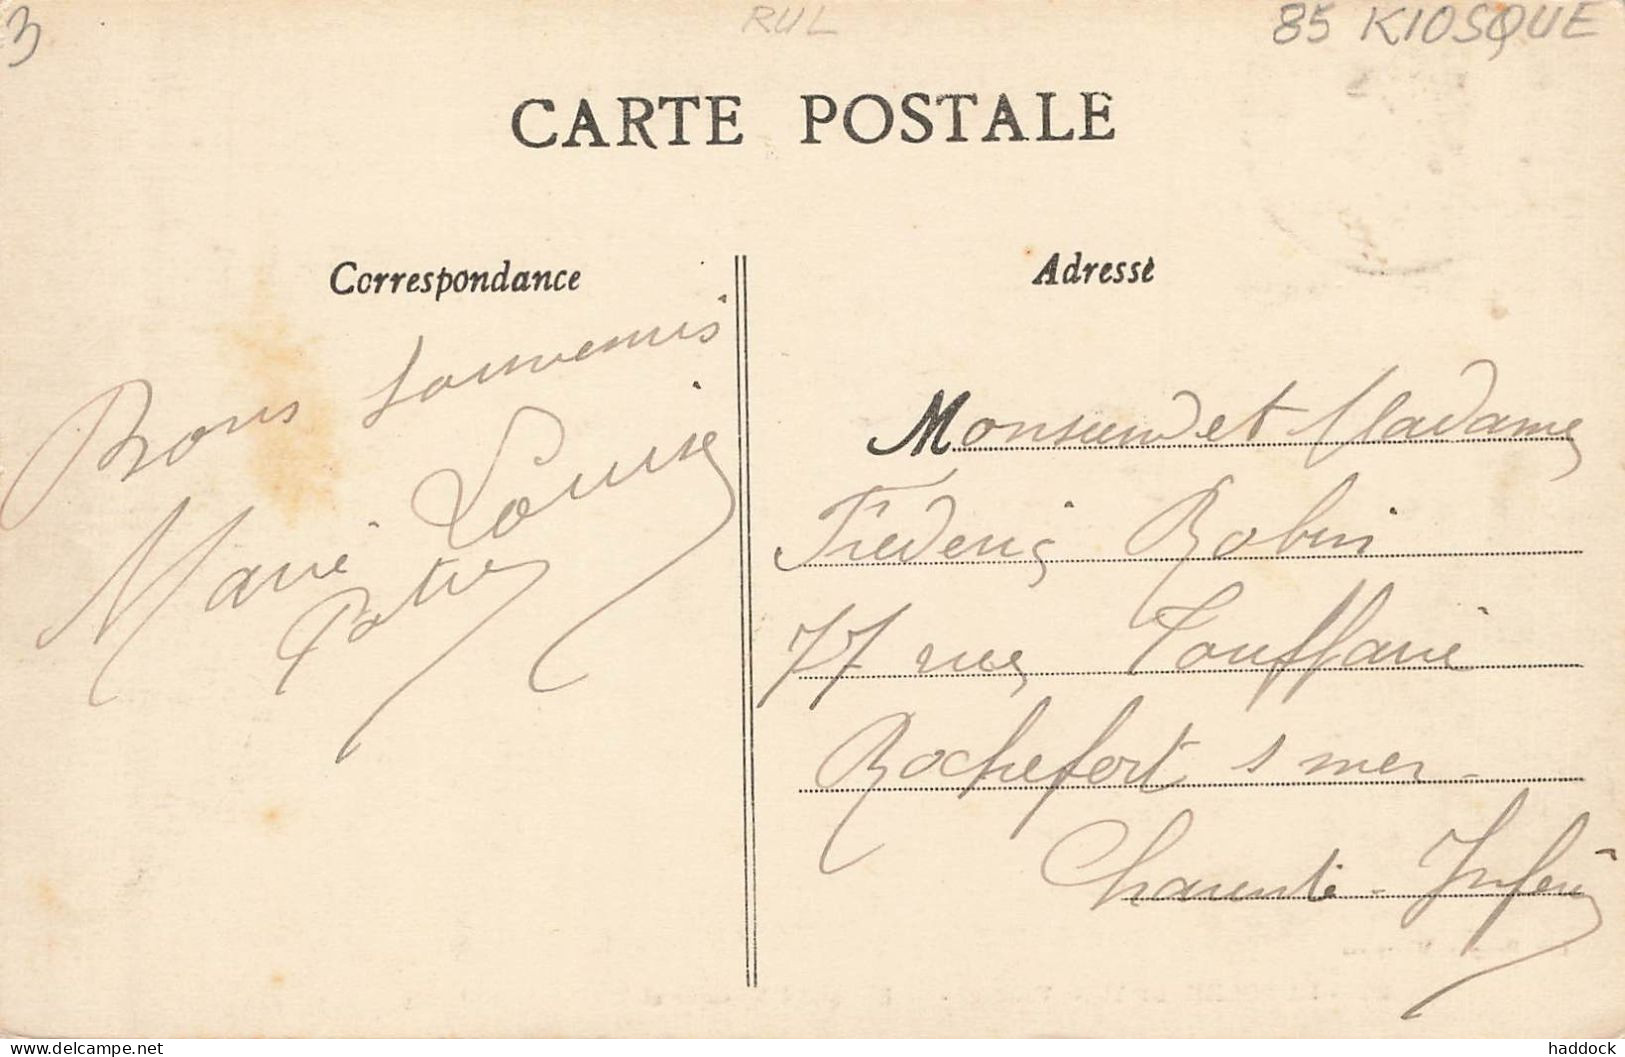 3
RUL
85 KIOSQUE
CARTE POSTALE
Correspondance
Bons souvenirs
Marie Louise
Adresse
Monsieur et Madame
Fréderic Robin
77 rue Toufflaire
Rochefort s mer
Charente-Infér
www.delcampe.net
haddock